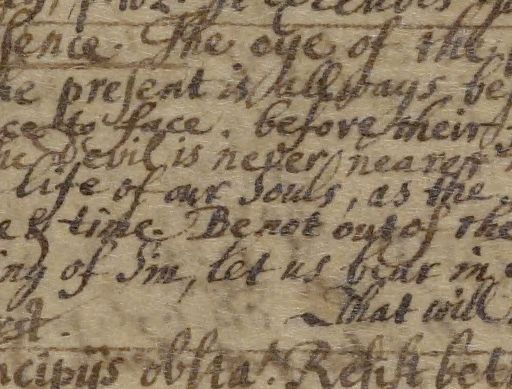 sence. The eye of the
he present is allways bef
ce to face. before their
he Devil is never nearer
life of our Souls, as the
e & time. Be not out of the
ing of Sin, let us bear in
That will
ncipijs obsta. Resist bet